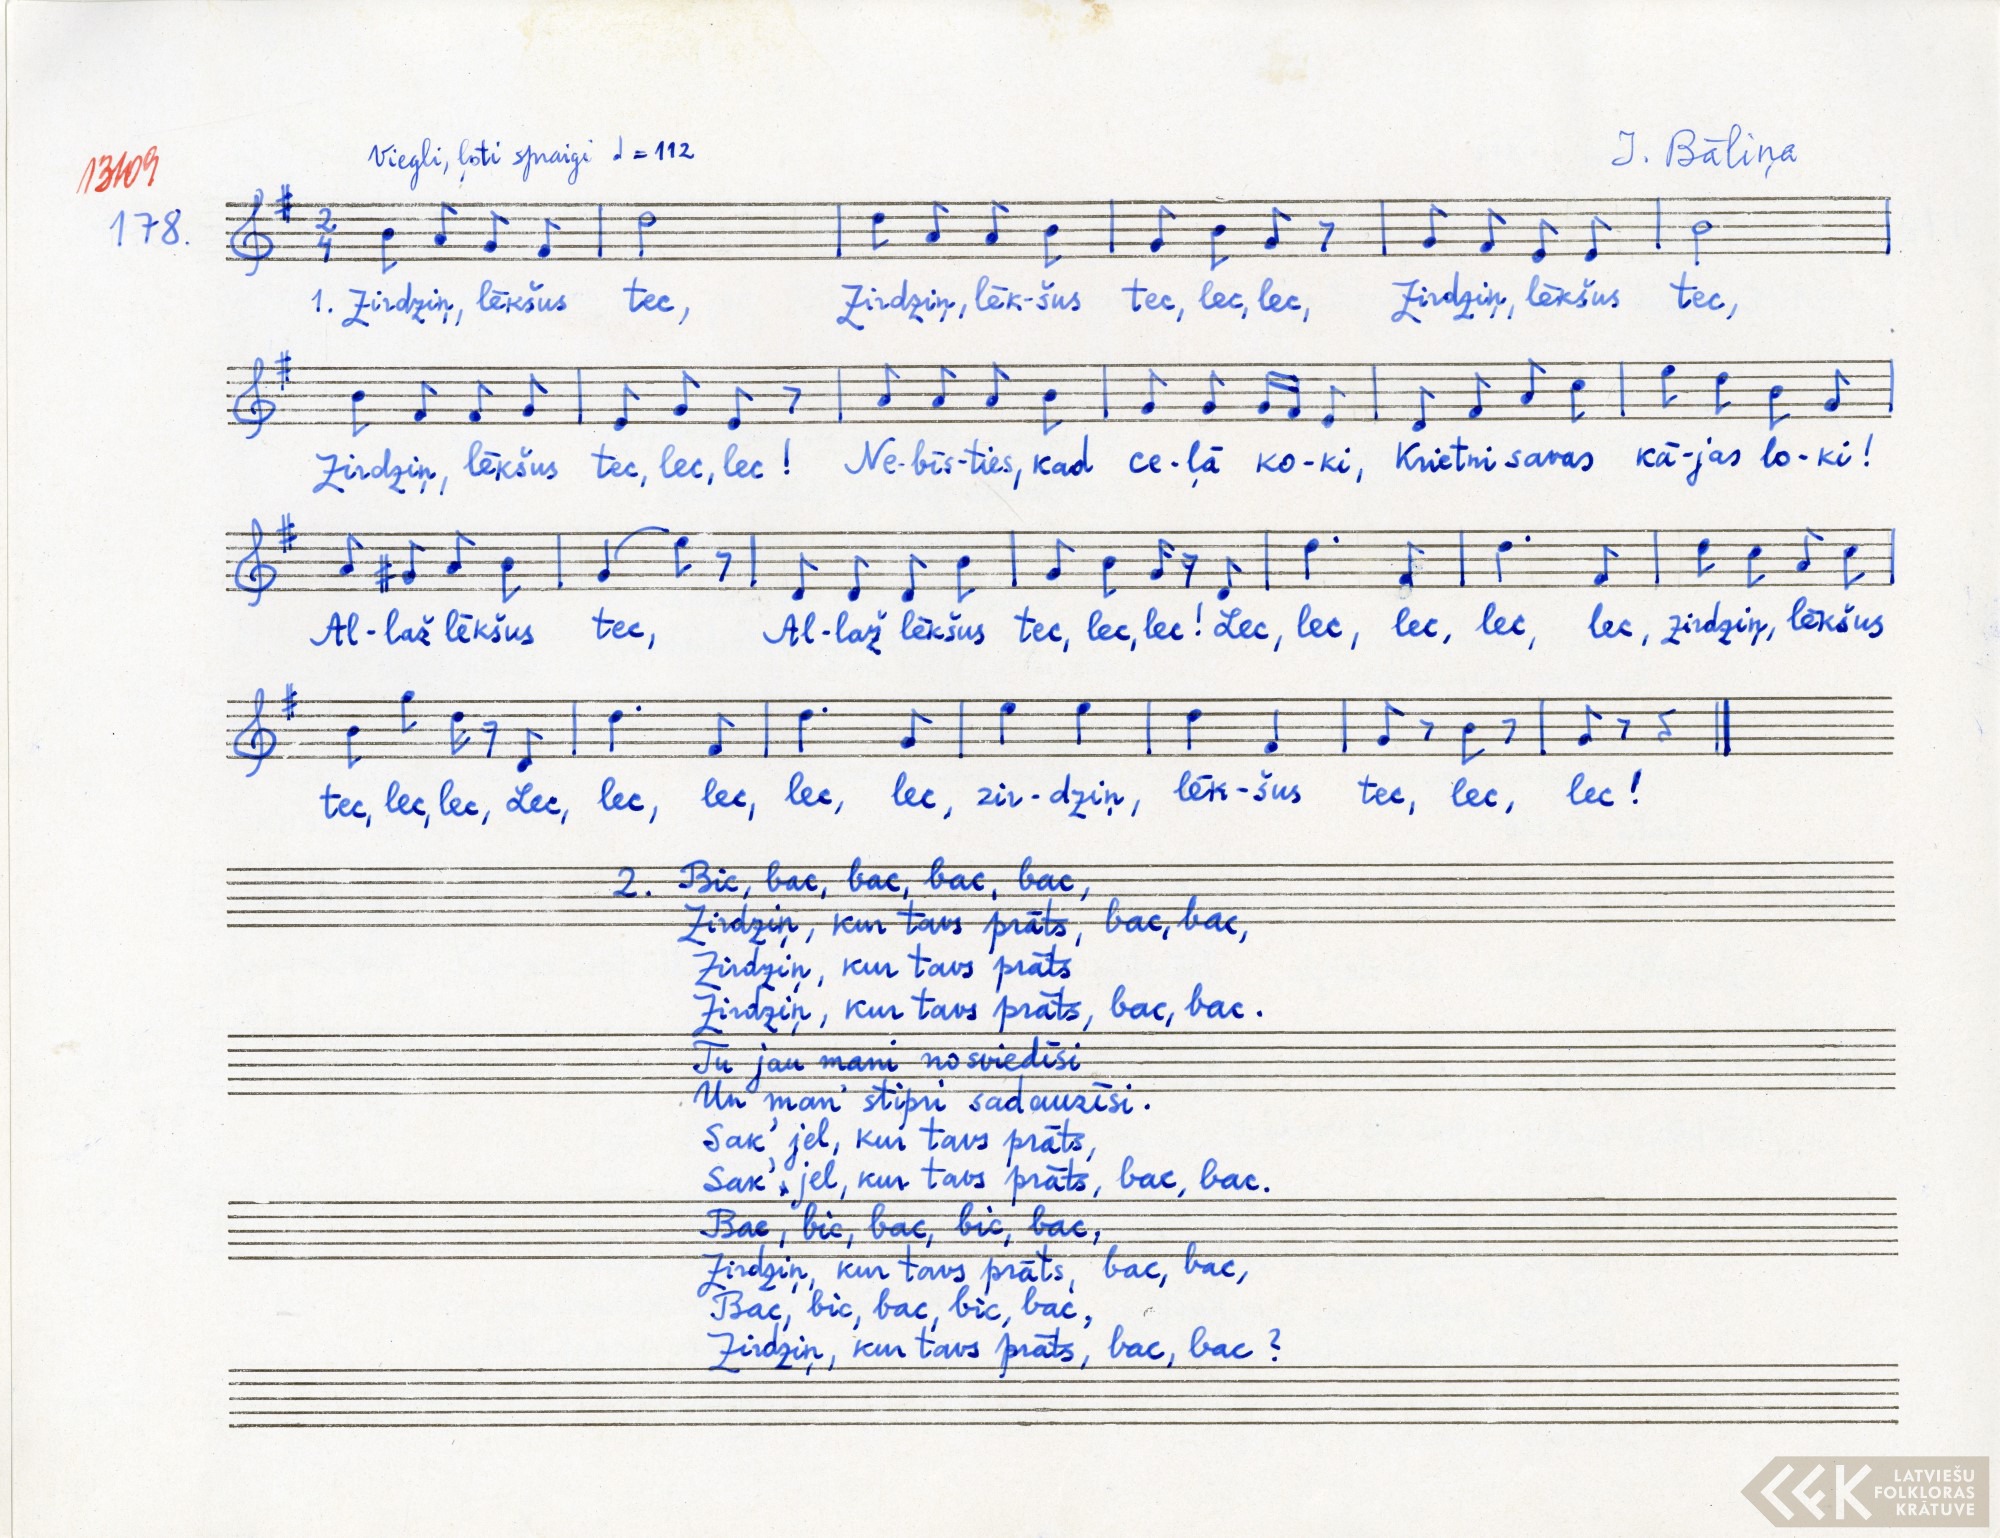 13109
Viegli, ļoti spraigi ♩ = 112
J. Bāliņa
178.
2/4
1. Zirdziņ, lēkšus tec, Zirdziņ, lēk-šus tec, lec, lec, Zirdziņ, lēkšus tec,
Zirdziņ, lēkšus tec, lec, lec! Ne-bīs-ties, kad ce-ļā ko-ki, Krietni savas kā-jas lo-ki!
Al-laž lēkšus tec, Al-laž lēkšus tec, lec, lec! Lec, lec, lec, lec, lec, zirdziņ, lēkšus
tec, lec, lec, Lec, lec, lec, lec, lec, zir-dziņ, lēk-šus tec, lec, lec!
2. Bic, bac, bac, bac, bac,
Zirdziņ, kur tavs prāts, bac, bac,
Zirdziņ, kur tavs prāts
Zirdziņ, kur tavs prāts, bac, bac.
Tu jau mani nosviedīsi
Un man' stipri sadauzīsi.
Sak' jel, kur tavs prāts,
Sak' jel, kur tavs prāts, bac, bac.
Bac, bic, bac, bic, bac,
Zirdziņ, kur tavs prāts, bac, bac,
Bac, bic, bac, bic, bac,
Zirdziņ, kur tavs prāts, bac, bac?
LATVIEŠU
FOLKLORAS
KRĀTUVE